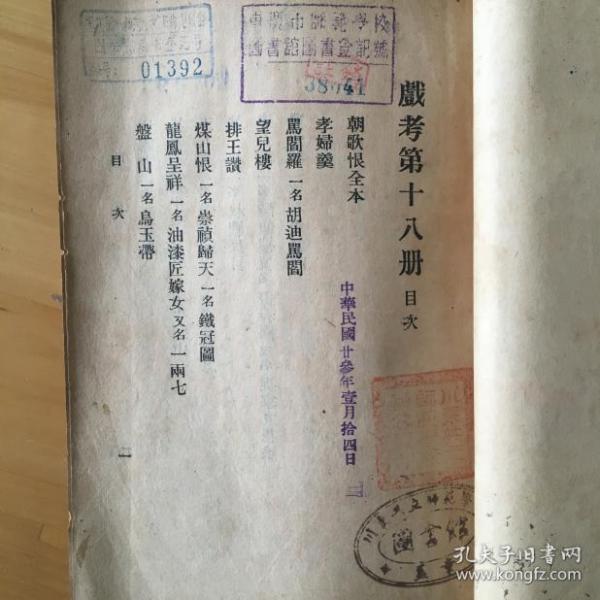 戲考第十八册 目次
朝歌恨全本
孝婦羹
罵閻羅 一名 胡迪罵閻
望兒樓
排王讚
煤山恨 一名 崇禎歸天 一名 鐵冠圖
龍鳳呈祥 一名 油漆匠嫁女 又名 一兩七
盤山 一名 烏玉帶
目次
一
中華民國廿參年壹月拾四日
01392
38741
圖書館
孔夫子旧书网
www.kongfz.com